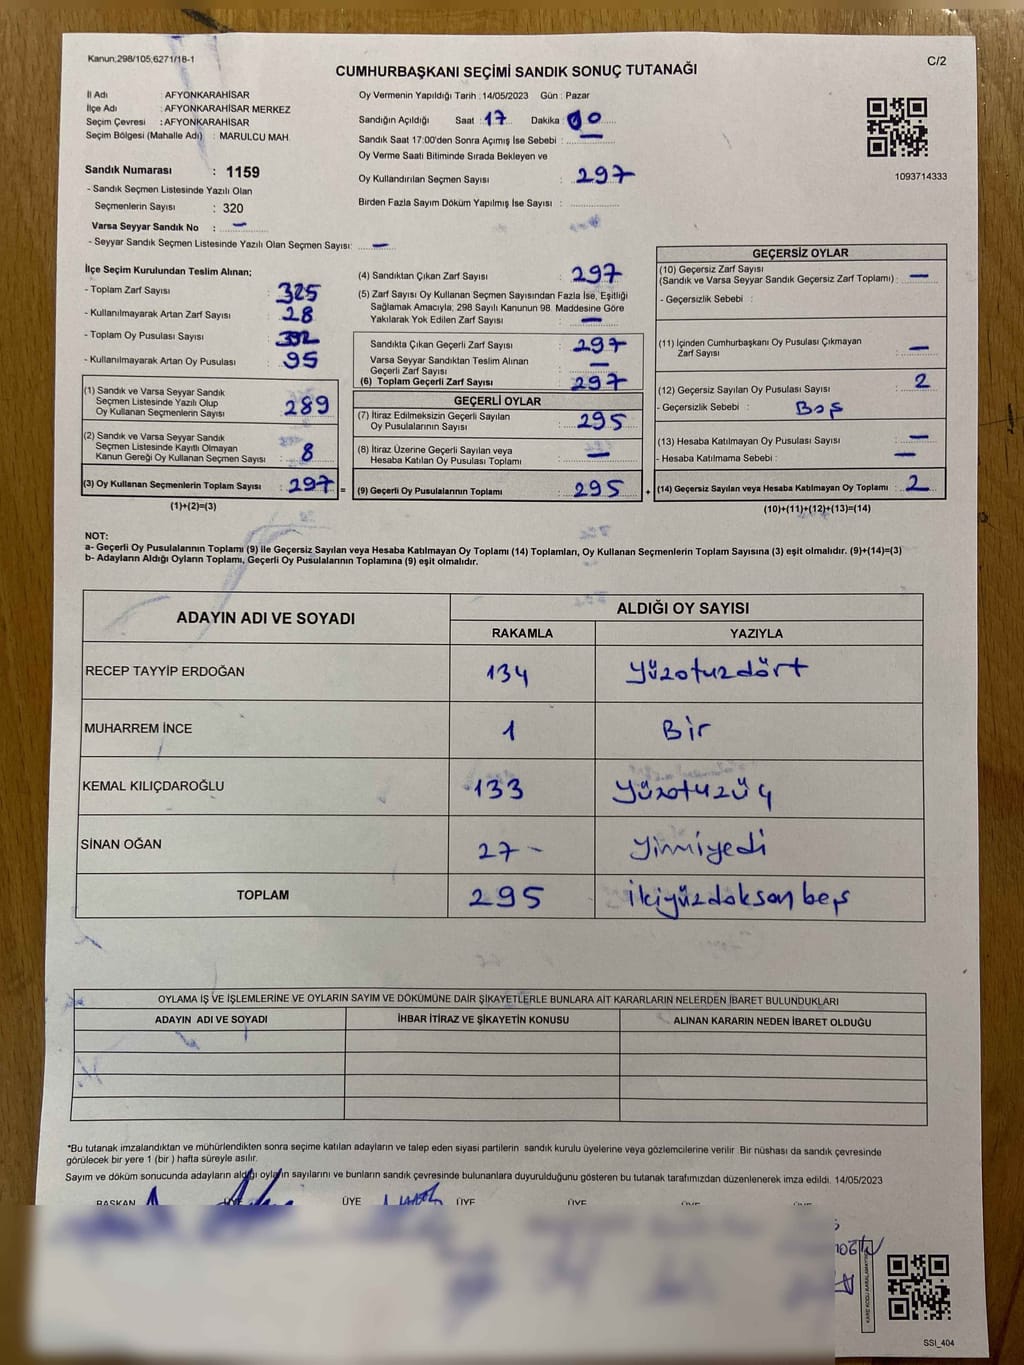 Kanun:298/105,6271/18-1
C/2
CUMHURBAŞKANI SEÇİMİ SANDIK SONUÇ TUTANAĞI
İl Adı : AFYONKARAHİSAR
İlçe Adı : AFYONKARAHİSAR MERKEZ
Seçim Çevresi : AFYONKARAHİSAR
Seçim Bölgesi (Mahalle Adı) : MARULCU MAH.
Sandık Numarası : 1159
- Sandık Seçmen Listesinde Yazılı Olan
Seçmenlerin Sayısı : 320
Varsa Seyyar Sandık No : —
- Seyyar Sandık Seçmen Listesinde Yazılı Olan Seçmen Sayısı: —
Oy Vermenin Yapıldığı Tarih : 14/05/2023 Gün : Pazar
Sandığın Açıldığı Saat : 17 Dakika : 00
Sandık Saat 17:00'den Sonra Açımış İse Sebebi : —
Oy Verme Saati Bitiminde Sırada Bekleyen ve
Oy Kullandırılan Seçmen Sayısı : 297
Birden Fazla Sayım Döküm Yapılmış İse Sayısı :
1093714333
İlçe Seçim Kurulundan Teslim Alınan;
- Toplam Zarf Sayısı : 325
- Kullanılmayarak Artan Zarf Sayısı : 28
- Toplam Oy Pusulası Sayısı : 392
- Kullanılmayarak Artan Oy Pusulası : 95
(1) Sandık ve Varsa Seyyar Sandık
Seçmen Listesinde Yazılı Olup
Oy Kullanan Seçmenlerin Sayısı : 289
(2) Sandık ve Varsa Seyyar Sandık
Seçmen Listesinde Kayıtlı Olmayan
Kanun Gereği Oy Kullanan Seçmen Sayısı : 8
(3) Oy Kullanan Seçmenlerin Toplam Sayısı : 297 =
(1)+(2)=(3)
(4) Sandıktan Çıkan Zarf Sayısı : 297
(5) Zarf Sayısı Oy Kullanan Seçmen Sayısından Fazla İse, Eşitliği
Sağlamak Amacıyla, 298 Sayılı Kanunun 98. Maddesine Göre
Yakılarak Yok Edilen Zarf Sayısı : —
Sandıkta Çıkan Geçerli Zarf Sayısı : 297
Varsa Seyyar Sandıktan Teslim Alınan
Geçerli Zarf Sayısı : —
(6) Toplam Geçerli Zarf Sayısı : 297
GEÇERLİ OYLAR
(7) İtiraz Edilmeksizin Geçerli Sayılan
Oy Pusulalarının Sayısı : 295
(8) İtiraz Üzerine Geçerli Sayılan veya
Hesaba Katılan Oy Pusulası Toplamı : —
(9) Geçerli Oy Pusulalarının Toplamı : 295 +
GEÇERSİZ OYLAR
(10) Geçersiz Zarf Sayısı
(Sandık ve Varsa Seyyar Sandık Geçersiz Zarf Toplamı) : —
- Geçersizlik Sebebi :
(11) İçinden Cumhurbaşkanı Oy Pusulası Çıkmayan
Zarf Sayısı : —
(12) Geçersiz Sayılan Oy Pusulası Sayısı : 2
- Geçersizlik Sebebi : Boş
(13) Hesaba Katılmayan Oy Pusulası Sayısı : —
- Hesaba Katılmama Sebebi : —
(14) Geçersiz Sayılan veya Hesaba Katılmayan Oy Toplamı : 2
(10)+(11)+(12)+(13)=(14)
NOT:
a- Geçerli Oy Pusulalarının Toplamı (9) ile Geçersiz Sayılan veya Hesaba Katılmayan Oy Toplamı (14) Toplamları, Oy Kullanan Seçmenlerin Toplam Sayısına (3) eşit olmalıdır. (9)+(14)=(3)
b- Adayların Aldığı Oyların Toplamı, Geçerli Oy Pusulalarının Toplamına (9) eşit olmalıdır.
ADAYIN ADI VE SOYADI
ALDIĞI OY SAYISI
RAKAMLA YAZIYLA
RECEP TAYYİP ERDOĞAN 134 Yüzotuzdört
MUHARREM İNCE 1 Bir
KEMAL KILIÇDAROĞLU 133 Yüzotuzüç
SİNAN OĞAN 27 - Yirmiyedi
TOPLAM 295 İkiyüzdoksanbeş
OYLAMA İŞ VE İŞLEMLERİNE VE OYLARIN SAYIM VE DÖKÜMÜNE DAİR ŞİKAYETLERLE BUNLARA AİT KARARLARIN NELERDEN İBARET BULUNDUKLARI
ADAYIN ADI VE SOYADI İHBAR İTİRAZ VE ŞİKAYETİN KONUSU ALINAN KARARIN NEDEN İBARET OLDUĞU
*Bu tutanak imzalandıktan ve mühürlendikten sonra seçime katılan adayların ve talep eden siyasi partilerin sandık kurulu üyelerine veya gözlemcilerine verilir. Bir nüshası da sandık çevresinde
görülecek bir yere 1 (bir ) hafta süreyle asılır.
Sayım ve döküm sonucunda adayların aldığı oyların sayılarını ve bunların sandık çevresinde bulunanlara duyurulduğunu gösteren bu tutanak tarafımızdan düzenlenerek imza edildi. 14/05/2023
BAŞKAN ÜYE ÜYE ÜYE ÜYE ÜYE ÜYE
SSI_404